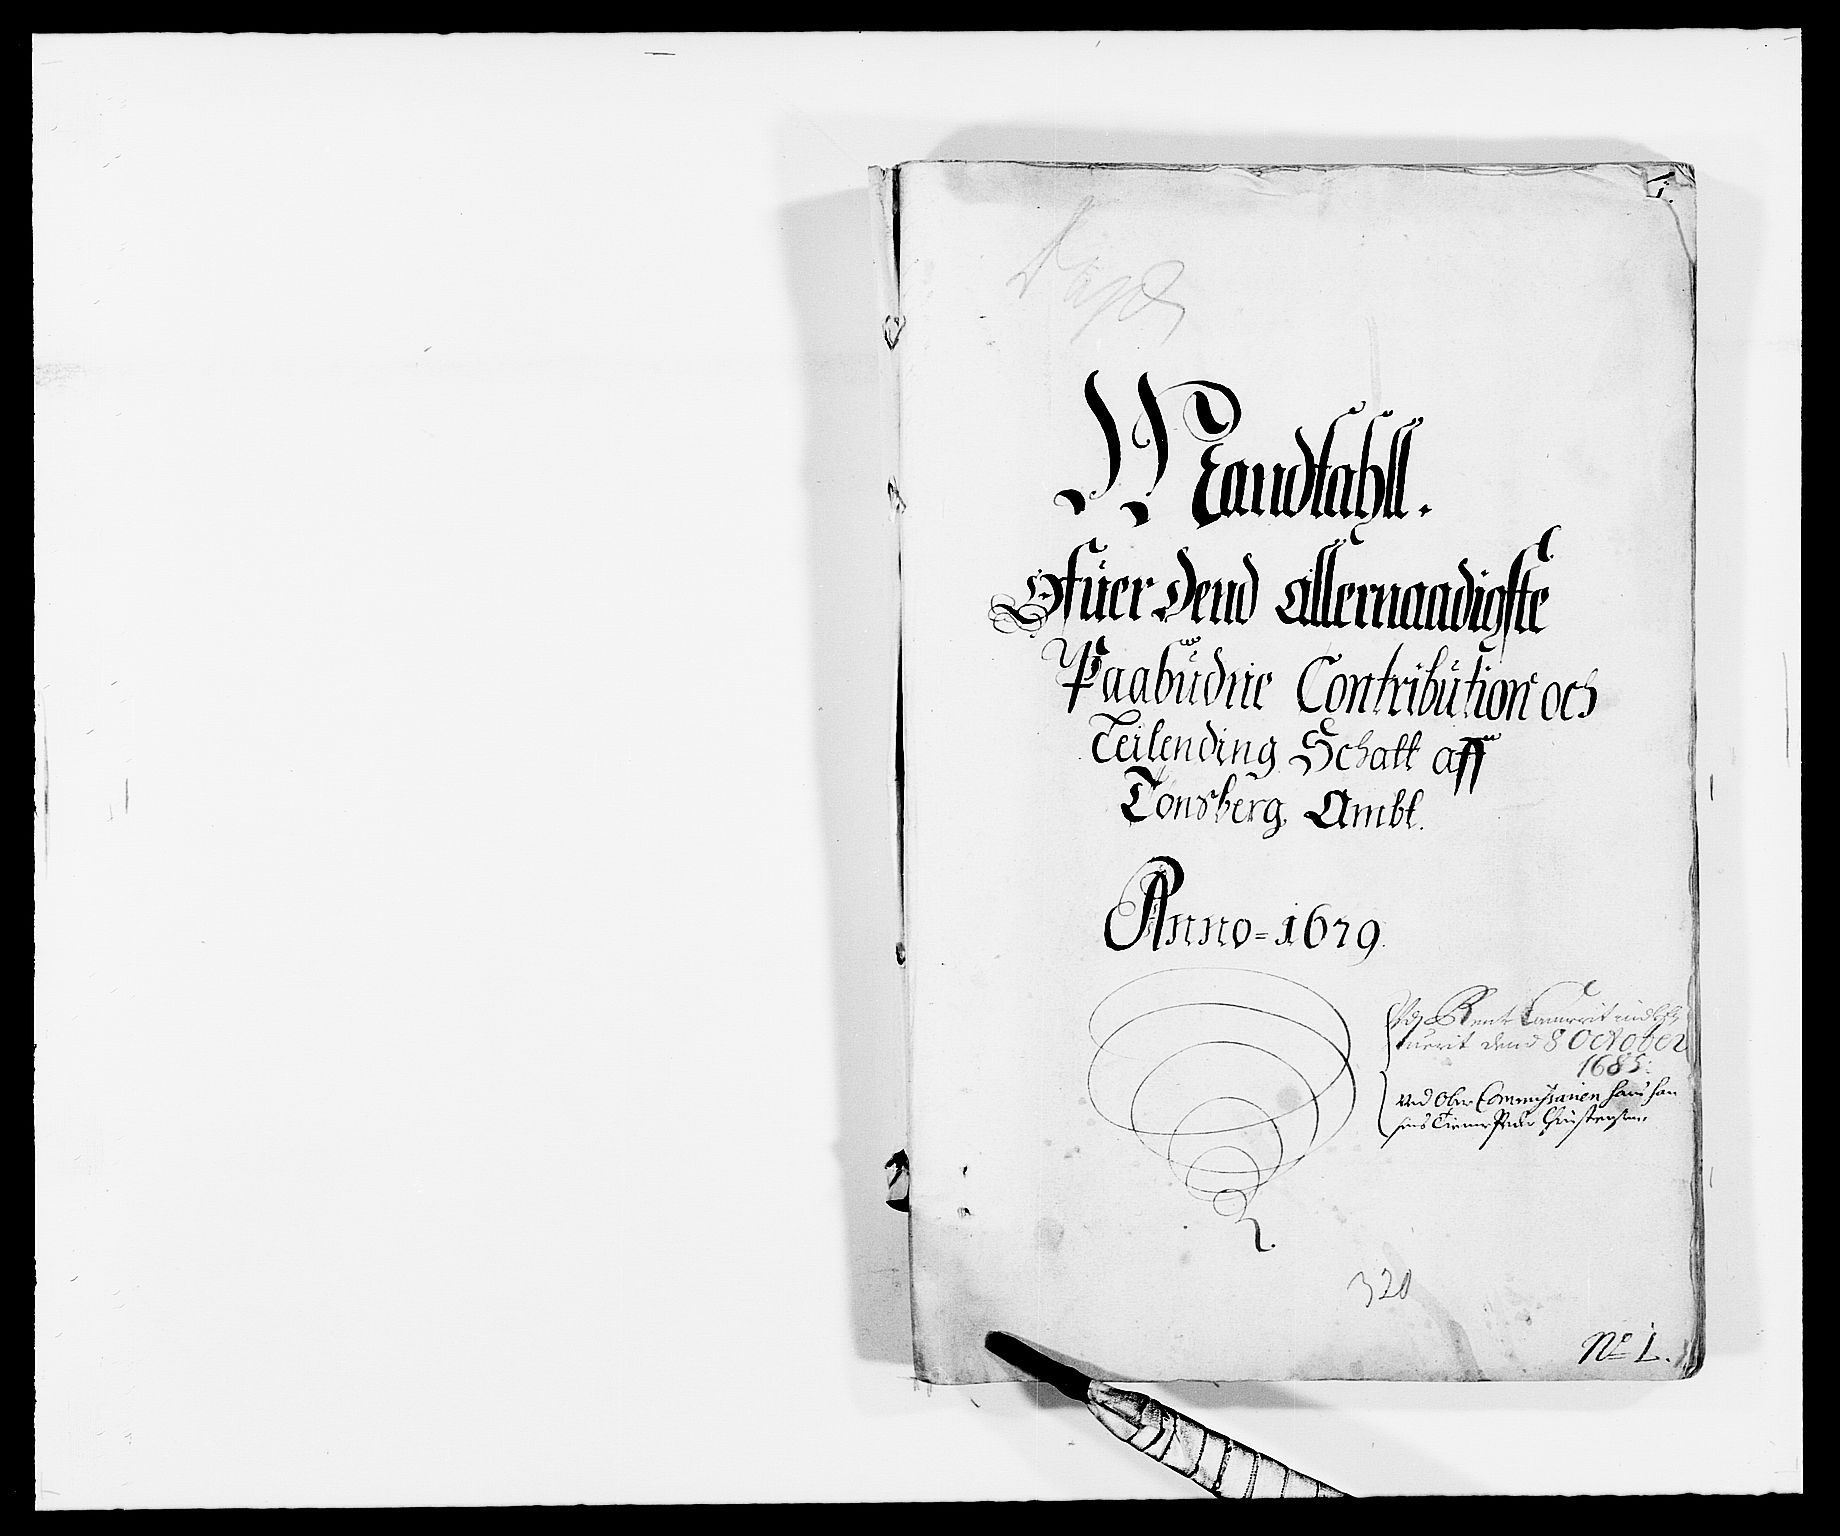 1.
Mandtahll.
Ofuer Dend Allernaadigste
Paabudne Contribution och
Teilending Schatt aff
Tonsberg Ambt.
Anno = 1679.
Paa Rente Cammerit indle-
uerit dend 8 October
1685:
ved Ober Commissarien Hans Han
320
No 1.